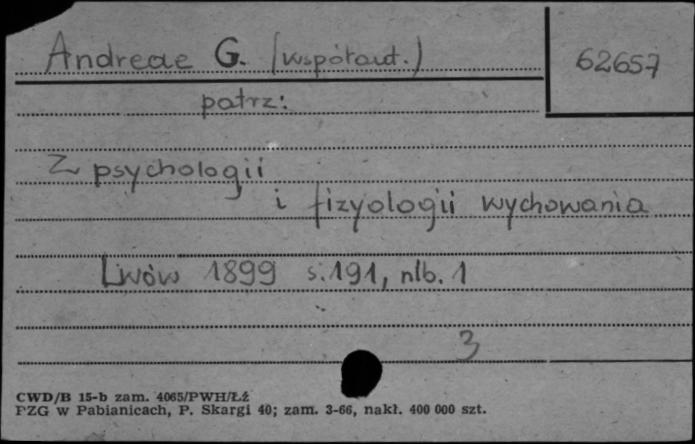 Andreae G. (współaut.)
62657
patrz:
Z psychologii
i fizyologii wychowania
Lwów 1899 s. 191, nlb. 1
3
CWD/B 15-b zam. 4065/PWH/Łź
PZG w Pabianicach, P. Skargi 40; zam. 3-66, nakł. 400 000 szt.